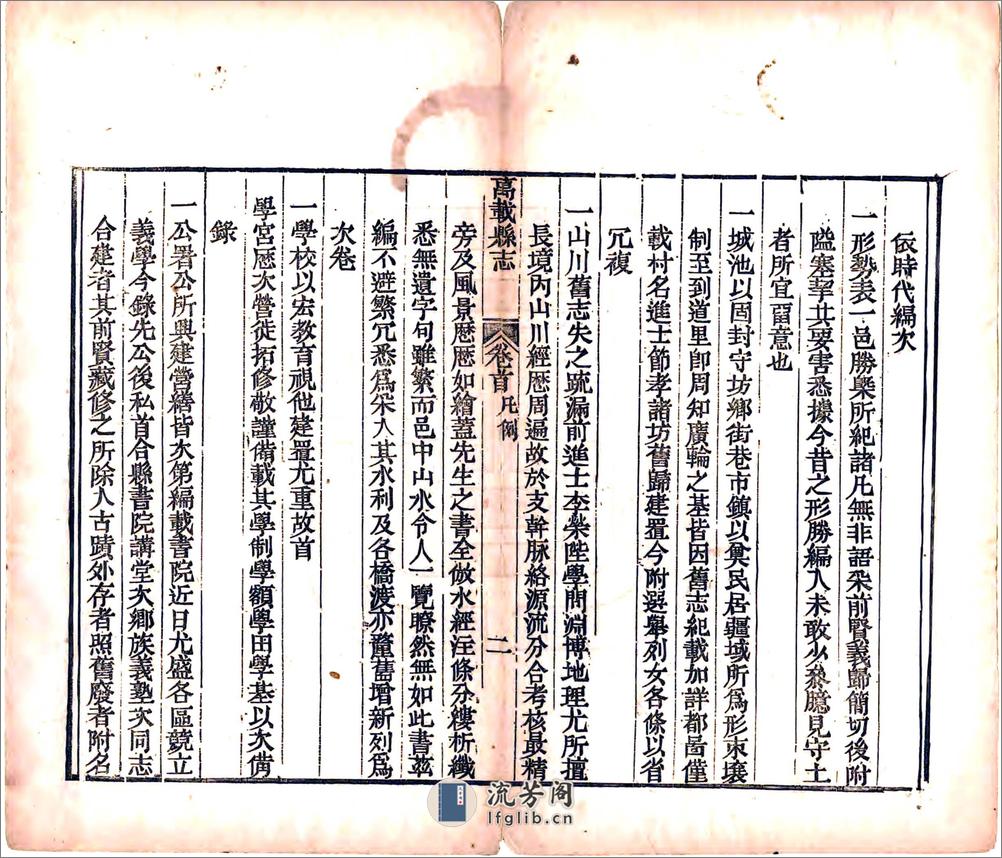 依時代編次
一形勢表一邑勝槩所紀諸凡無非語采前賢義歸簡切後附
隘塞挈其要害悉據今昔之形勝編入未敢少叅臆見守土
者所宜畱意也
一城池以固封守坊鄉街巷市鎮以奠民居疆域所爲形束壤
制至到道里卽周知廣輪之基皆因舊志紀載加詳都啚僅
載村名進士節孝諸坊舊歸建置今附選舉列女各條以省
冗複
一山川舊志失之疏漏前進士李榮陛學問淵博地理尤所擅
長境內山川經歷周遍故於支幹脉絡源流分合考核最精
萬載縣志
卷首 凡例
二
旁及風景歷歷如繪蓋先生之書全倣水經注條分縷析纖
悉無遺字句雖繁而邑中山水令人一覽瞭然無如此書茲
編不避繁冗悉爲采入其水利及各橋渡亦彙舊增新列爲
次卷
一學校以宏教育視他建置尤重故首
學宮歷次營徙拓修敬謹備載其學制學額學田學基以次備
錄
一公署公所興建營繕皆次第編載書院近日尤盛各區競立
義學今錄先公後私首合縣書院講堂次鄉族義塾次同志
合建者其前賢藏修之所除入古蹟外存者照舊廢者附名
流芳阁
lfglib.cn